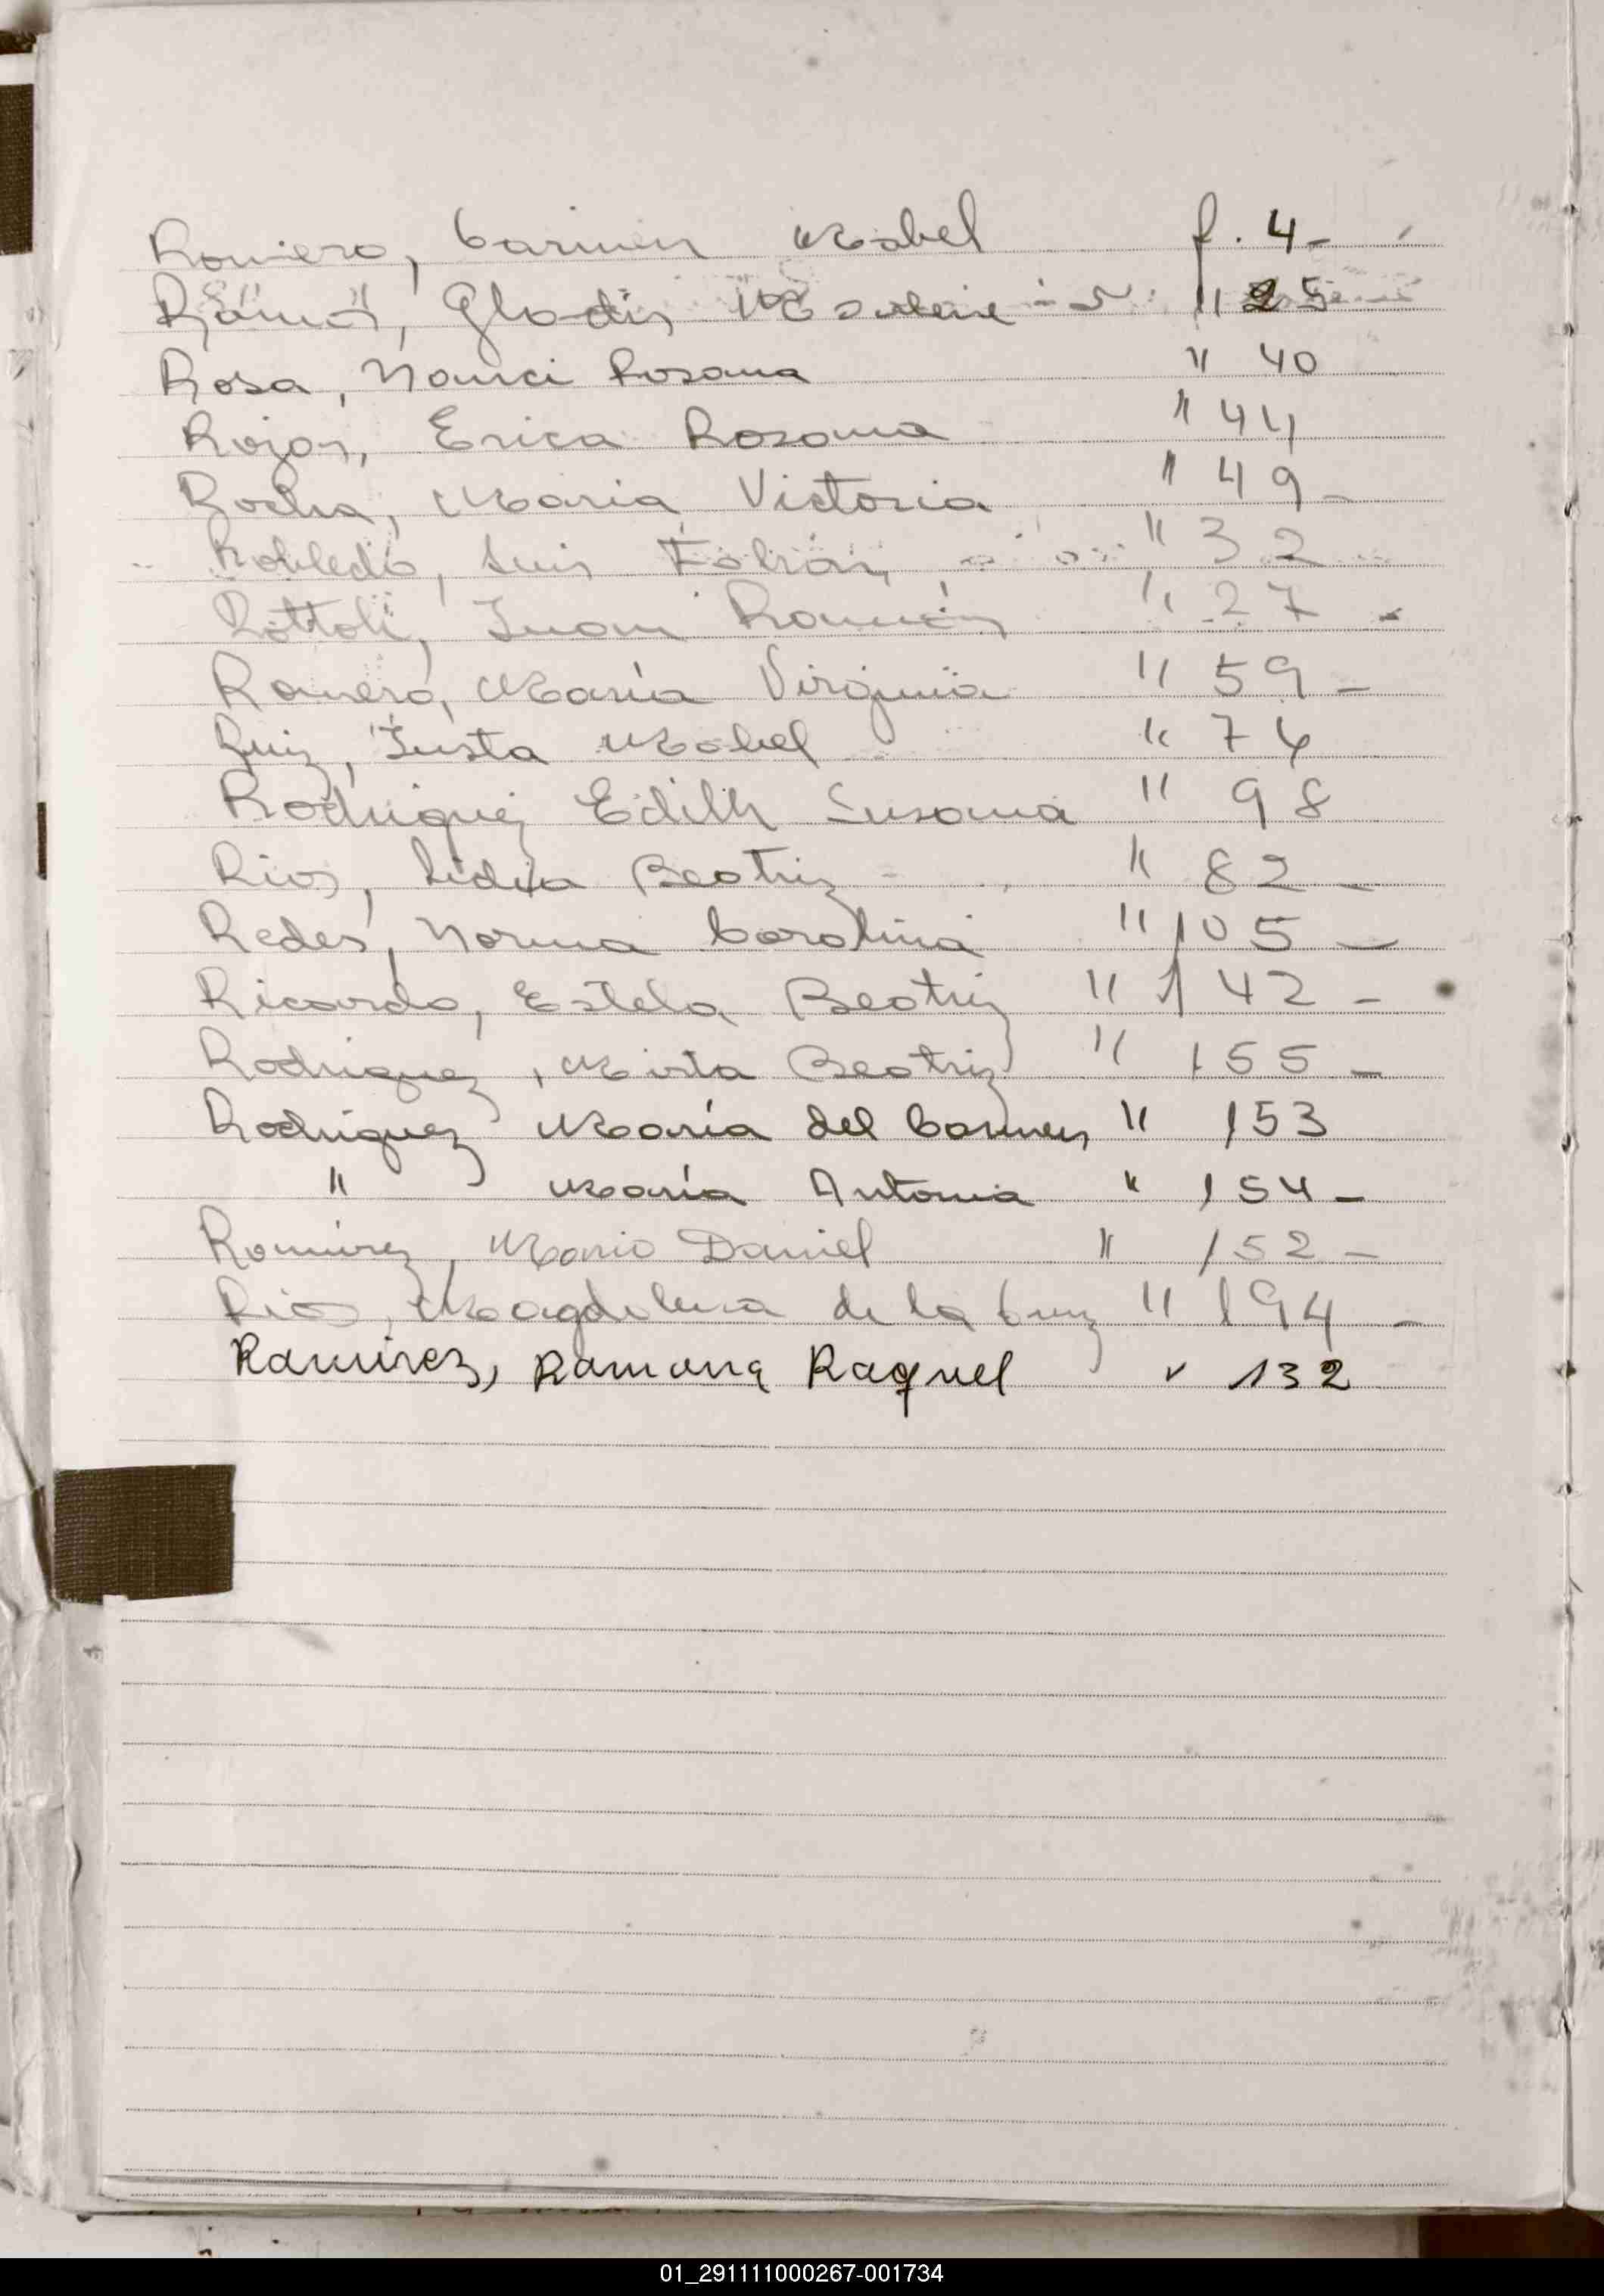 Romero, Carmen Mabel f. 4 -
Ramos, Gladis " 25
Rosa, Nanci Rosana " 40
Rojas, Erica Rosana " 44
Rocha, Maria Victoria " 49 -
Robledo, Luis Fabián, " 32
Rottoli, Juan Ramón " 27 -
Romero, María Virginia " 59 -
Ruiz, Justa Mabel " 74
Rodriguez Edith Susana " 98
Rios, Lidia Beatriz " 82 -
Redes, Norma Carolina " 105 -
Ricardo, Estela Beatriz " 142 -
Rodriguez, Mirta Beatriz " 155 -
Rodriguez María del Carmen " 153
" María Antonia " 154 -
Ramirez, Mario Daniel " 152 -
Rios, Magdalena de la Cruz " 194 -
Ramirez, Ramona Raquel " 132
01_291111000267-001734